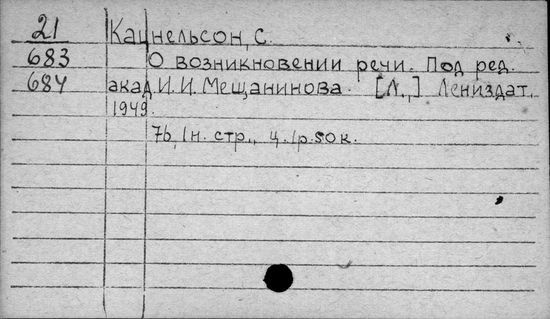 21 Кацнельсон, С.
683 О возникновении речи. Под ред.
684 акад. И. И. Мещанинова. [Л.,] Лениздат,
1949.
76, 1 н. стр., ц. 1 р. 50 к.